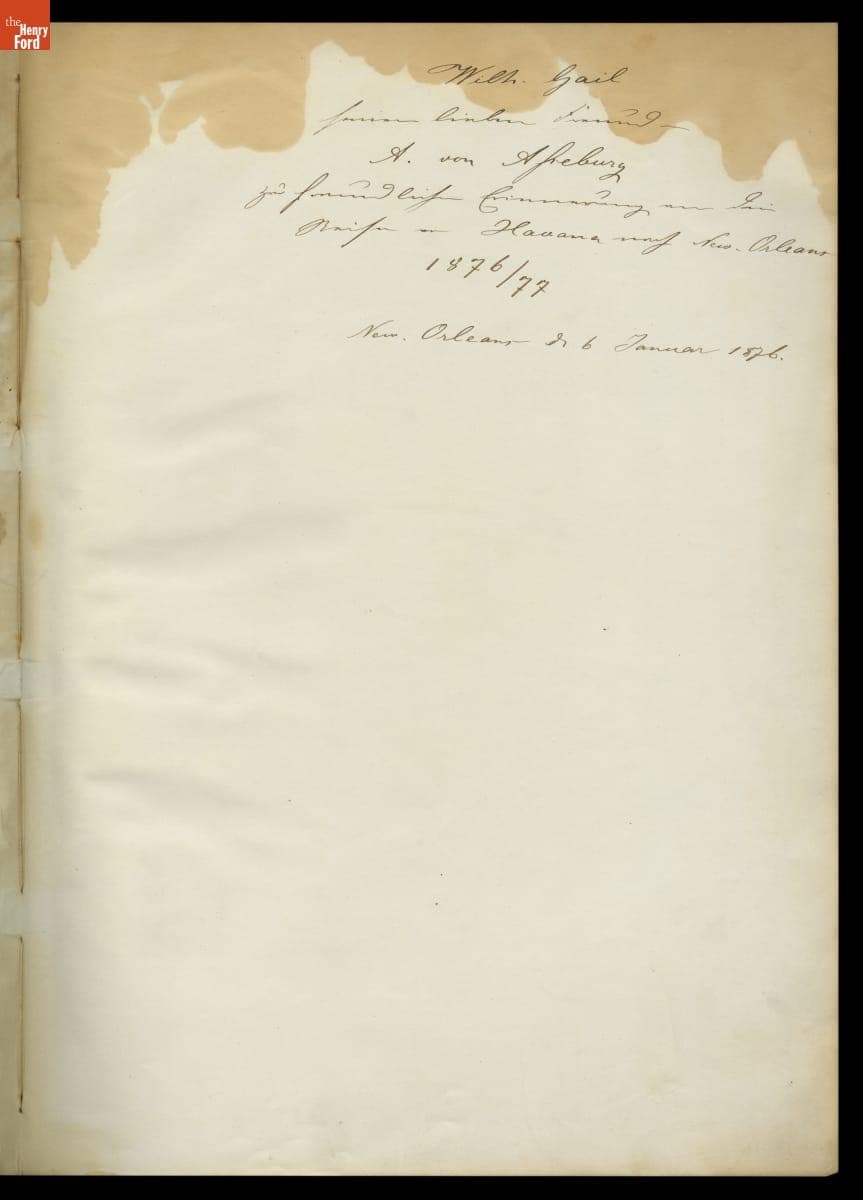 the
Henry
Ford
Wilh. Gail
seinem lieben Freund
A. von Asseburg
zur freundlichen Erinnerung an die
Reise v Havana nach New-Orleans
1876/77
New-Orleans d 6 Januar 1876.